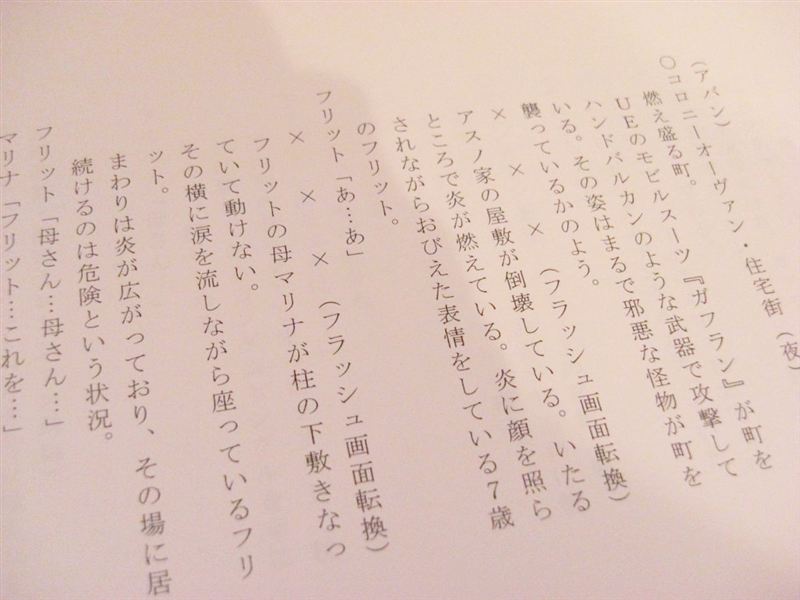 （アバン）
○コロニーオーヴァン・住宅街（夜）
燃え盛る町。
UEのモビルスーツ『ガフラン』が町を
ハンドバルカンのような武器で攻撃して
いる。その姿はまるで邪悪な怪物が町を
襲っているかのよう。
× × × （フラッシュ画面転換）
アスノ家の屋敷が倒壊している。いたる
ところで炎が燃えている。炎に顔を照ら
されながらおびえた表情をしている７歳
のフリット。
フリット「あ…あ」
× × × （フラッシュ画面転換）
フリットの母マリナが柱の下敷きなっ
ていて動けない。
その横に涙を流しながら座っているフリ
ット。
まわりは炎が広がっており、その場に居
続けるのは危険という状況。
フリット「母さん…母さん…」
マリナ「フリット…これを…」